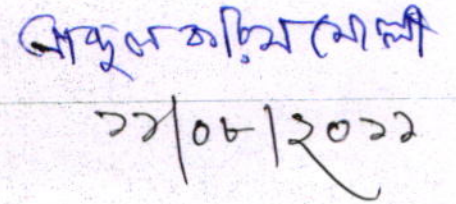 আব্দুল করিম মোল্লা
১১/০৮/২০১১